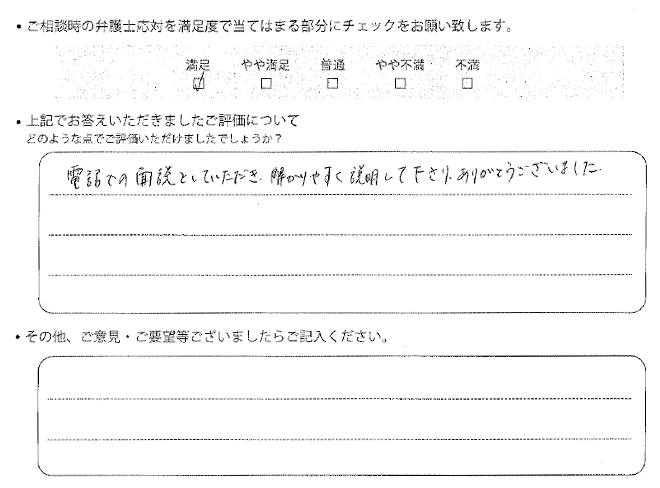 ・ご相談時の弁護士応対を満足度で当てはまる部分にチェックをお願い致します。
満足 やや満足 普通 やや不満 不満
☑ □ □ □ □
・上記でお答えいただきましたご評価について
どのような点でご評価いただけましたでしょうか？
電話での面談としていただき、解かりやすく説明して下さり、ありがとうございました。
・その他、ご意見・ご要望等ございましたらご記入ください。